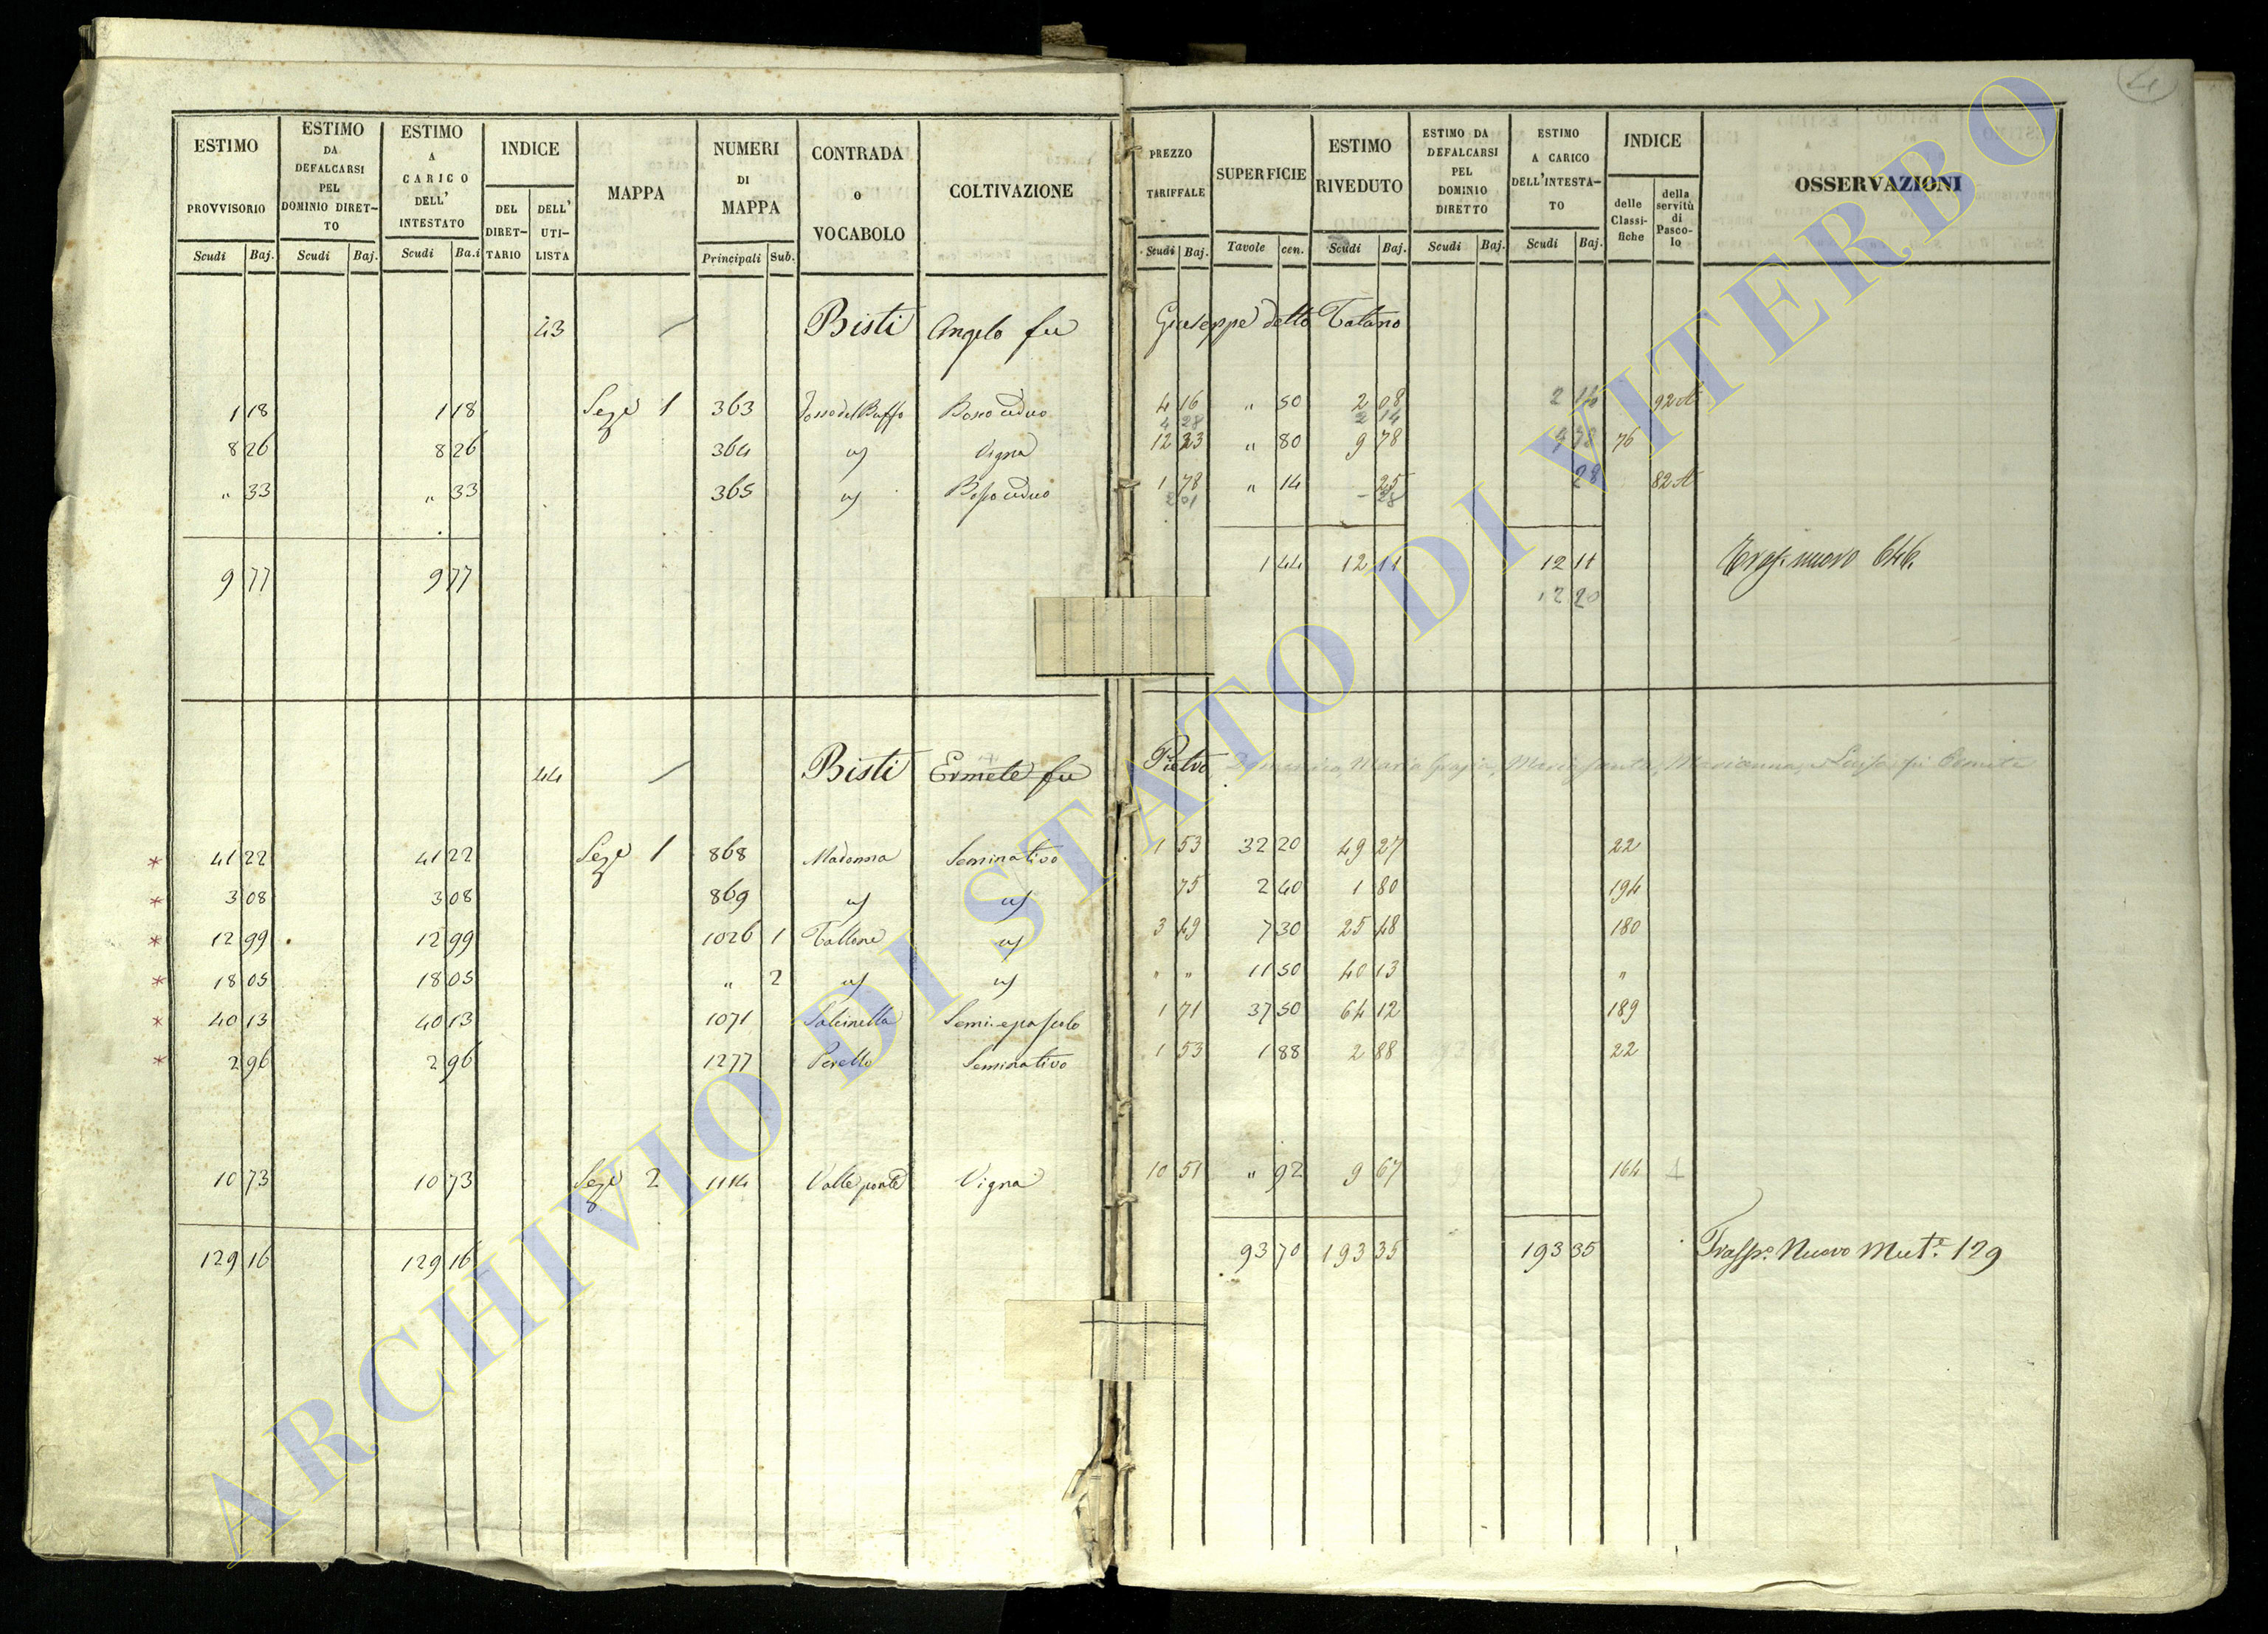 ESTIMO PROVVISORIO Scudi Baj.
ESTIMO DA DEFALCARSI PEL DOMINIO DIRET-TO Scudi Baj.
ESTIMO A CARICO DELL' INTESTATO Scudi Ba.i
INDICE DEL DIRET-TARIO DELL' UTI-LISTA
MAPPA
NUMERI DI MAPPA Principali Sub.
CONTRADA o VOCABOLO
COLTIVAZIONE
PREZZO TARIFFALE Scudi Baj.
SUPERFICIE Tavole cen.
ESTIMO RIVEDUTO Scudi Baj.
ESTIMO DA DEFALCARSI PEL DOMINIO DIRETTO Scudi Baj.
ESTIMO A CARICO DELL'INTESTA-TO Scudi Baj.
INDICE delle Classi-fiche della servitù di Pasco-lo
OSSERVAZIONI
43 Bisti Angelo fu Giuseppe detto Tatano
1 18 1 18 Seze 1 363 Bosco ceduo 4 16 " 50 2 08 2 14 92 A
4 28 2 14
8 26 8 26 364 Vigna 12 23 " 80 9 78 76
" 33 " 33 365 Bosco ceduo 1 78 " 14 25 28 82 A
2 01 28
9 77 9 77 1 44 12 11 12 11 Trasp. nuovo 646
12 20
44 Bisti Ermete fu Pietro, Domenico, Maria Grazia, Maria Santa, Marianna, Luisa fu Ermete
* 41 22 41 22 Seze 1 868 Madonna Seminativo 1 53 32 20 49 27 22
* 3 08 3 08 869 75 2 40 1 80 194
* 12 99 12 99 1026 1 Tallone 3 49 7 30 25 48 180
* 18 05 18 05 " 2 " " 11 50 40 13 "
* 40 13 40 13 1071 Salcinella Semi. e pascolo 1 71 37 50 64 12 189
* 2 96 2 96 1277 Perello Seminativo 1 53 1 88 2 88 22
10 73 10 73 Sezе 2 1114 Valle ponte Vigna 10 51 " 92 9 67 164
129 16 129 16 93 70 193 35 193 35 Trasp. Nuovo Mut.e 129
ARCHIVIO DI STATO DI VITERBO